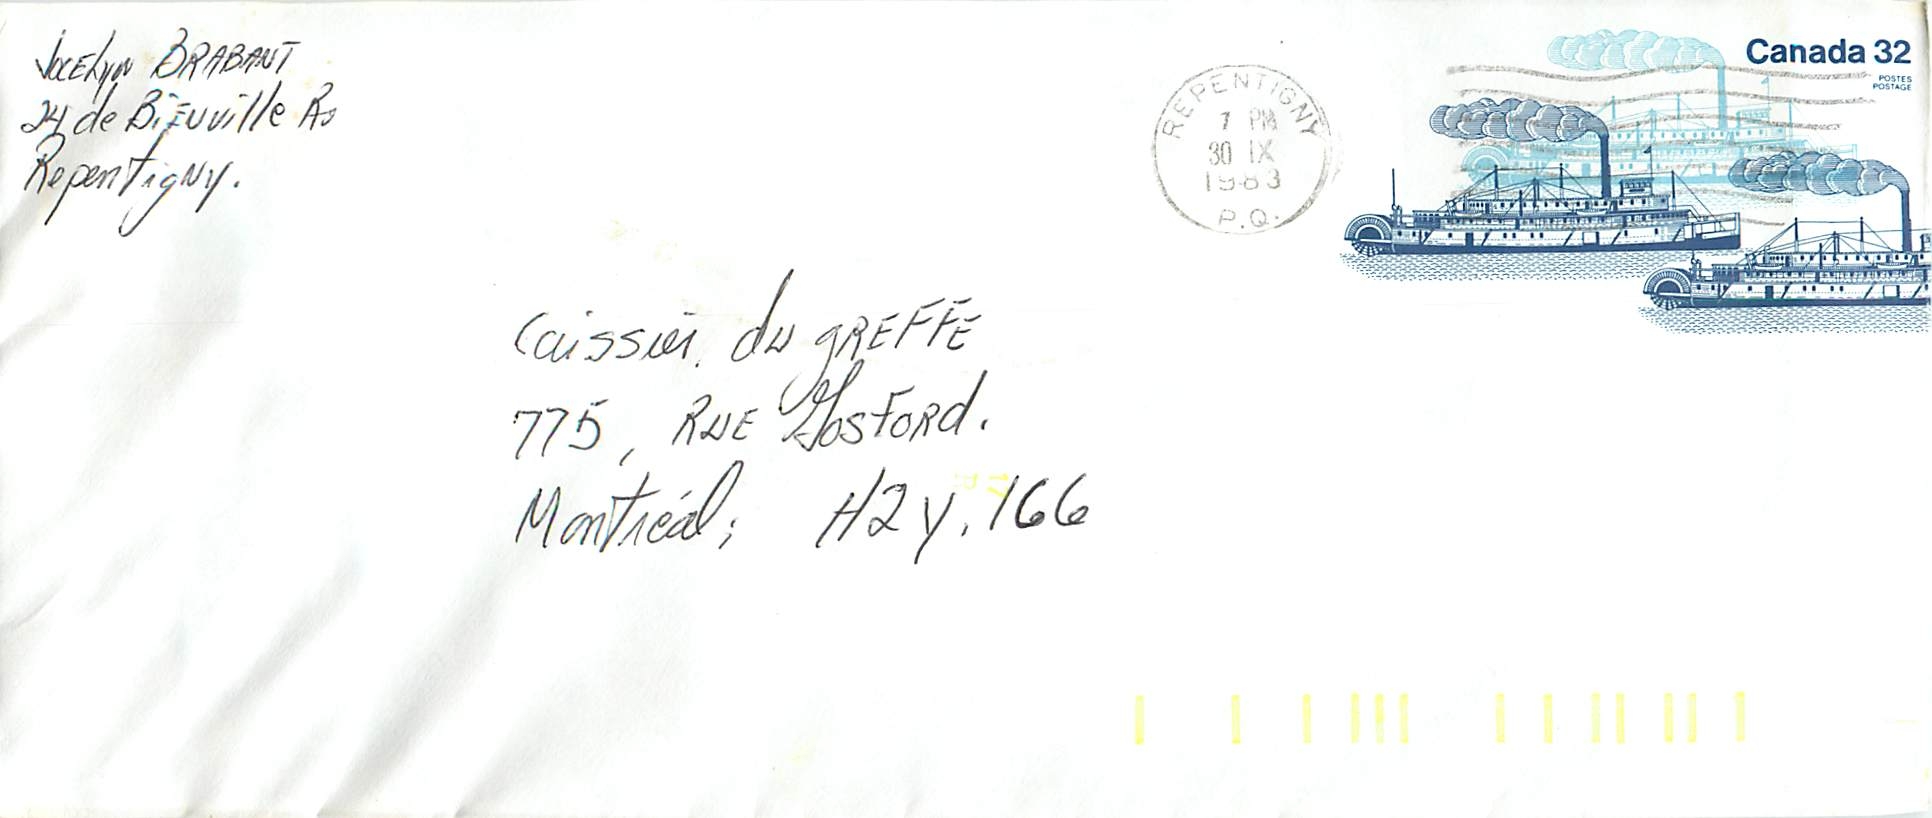 Jocelyn BRABANT
24 de Bienville
Repentigny.
Canada 32
POSTES
POSTAGE
REPENTIGNY
PM
30 IX
1983
P.Q.
Caissier, du GREFFE
775, RUE Gosford.
Montréal, H2Y, 1G6